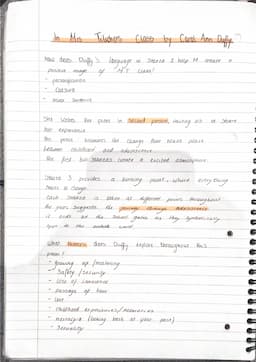 In Mrs Tilschers Class by Carol Ann Duffy
How does Duffy's language in Stanza 1 help to create a
positive image of M T class?
- personification
- Caesura
- minor sentence
She writes the poem in second person, having us to share
her experience
The poem the change that takes place
between childhood and adolescence.
The first two stanzas create a excited atmosphere.
Stanza 3 provides a turning point, where everything
starts to change.
Each stanza is taken at different points throughout
the year, suggests the
it ends at the school gates as they symbolically
open to the outside world.
What themes does Duffy explore throughout this
poem?
- growing up / maturing
- Safety / security
- Loss of innocence
- passage of time
- childhood experiences / memories
- nostalgia (looking back at your past)
- Sexuality